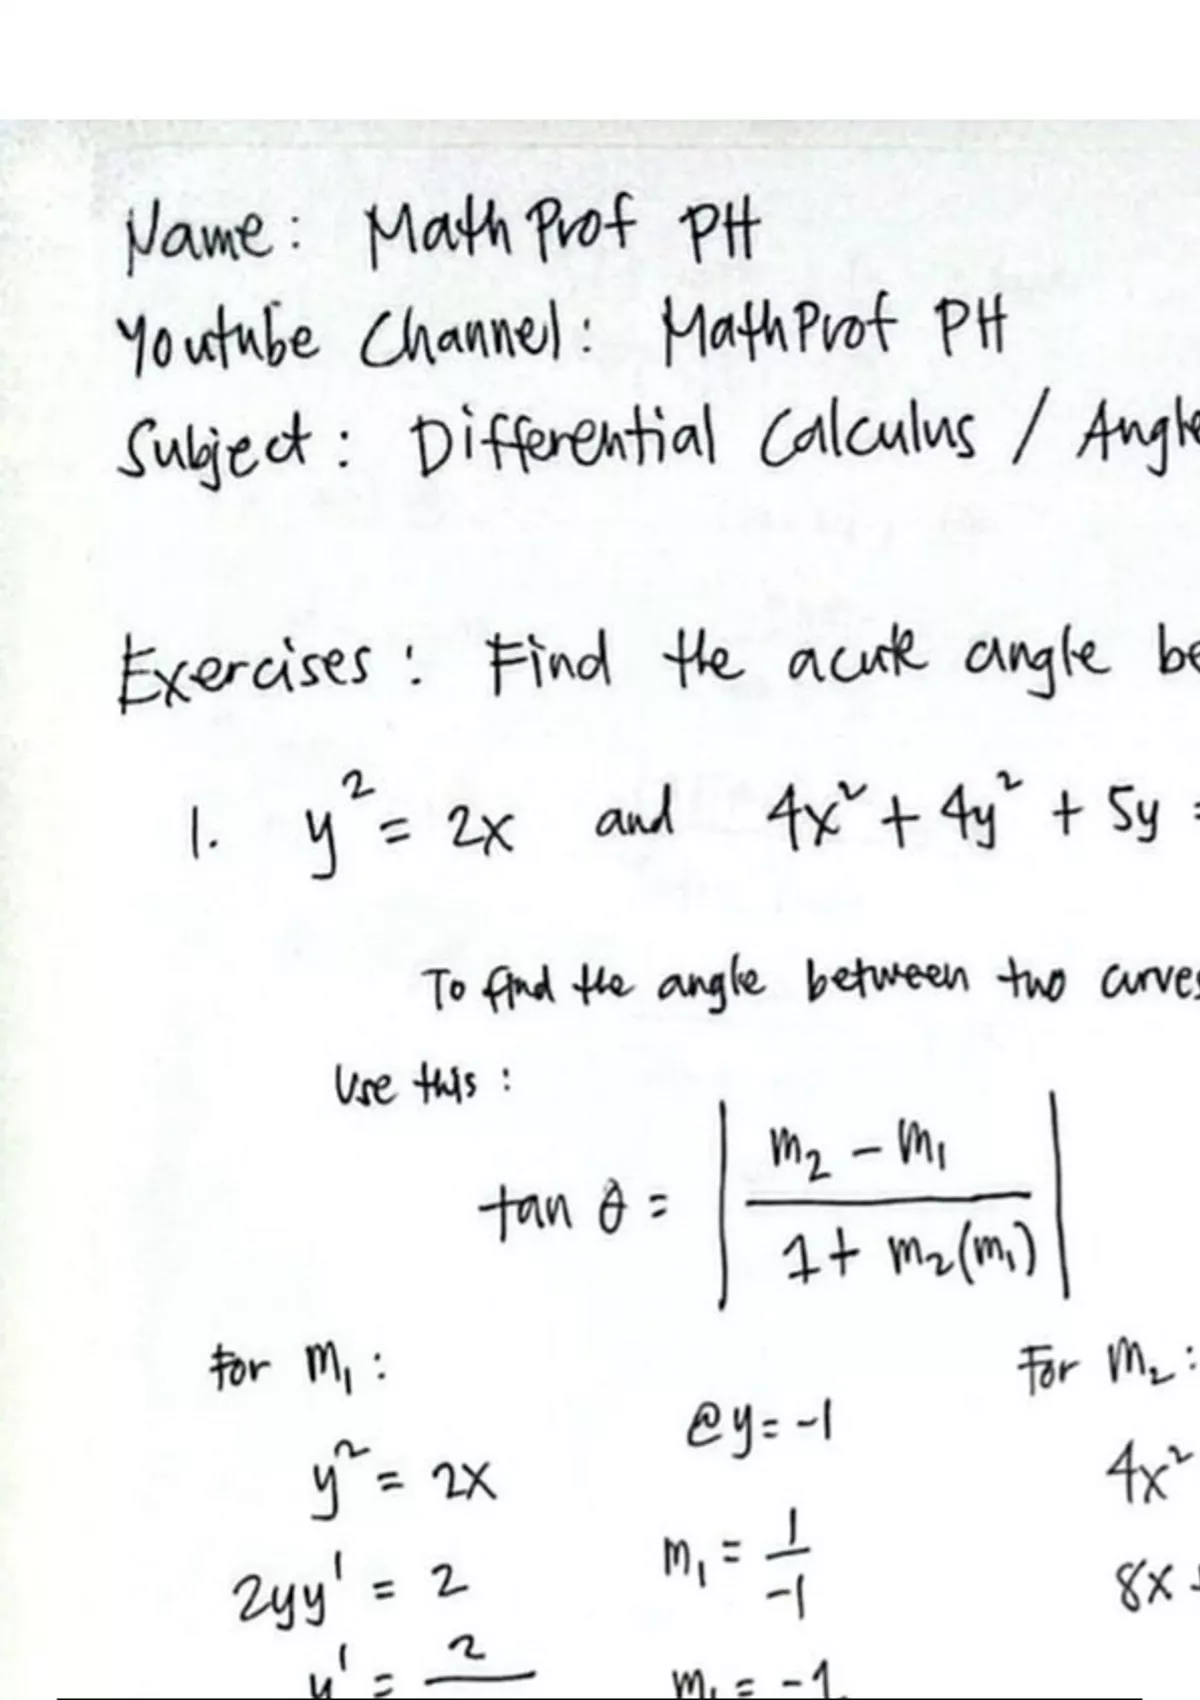 Name: MathProf PH
Youtube Channel: MathProf PH
Subject: Differential Calculus / Angle
Exercises: Find the acute angle be
1. y² = 2x and 4x² + 4y² + 5y =
To find the angle between two curves
Use this:
tan θ = | (m₂ - m₁) / (1 + m₂(m₁)) |
For m₁:
y² = 2x
2yy' = 2
y' = 2
@y = -1
m₁ = 1/-1
m₁ = -1
For m₂:
4x²
8x